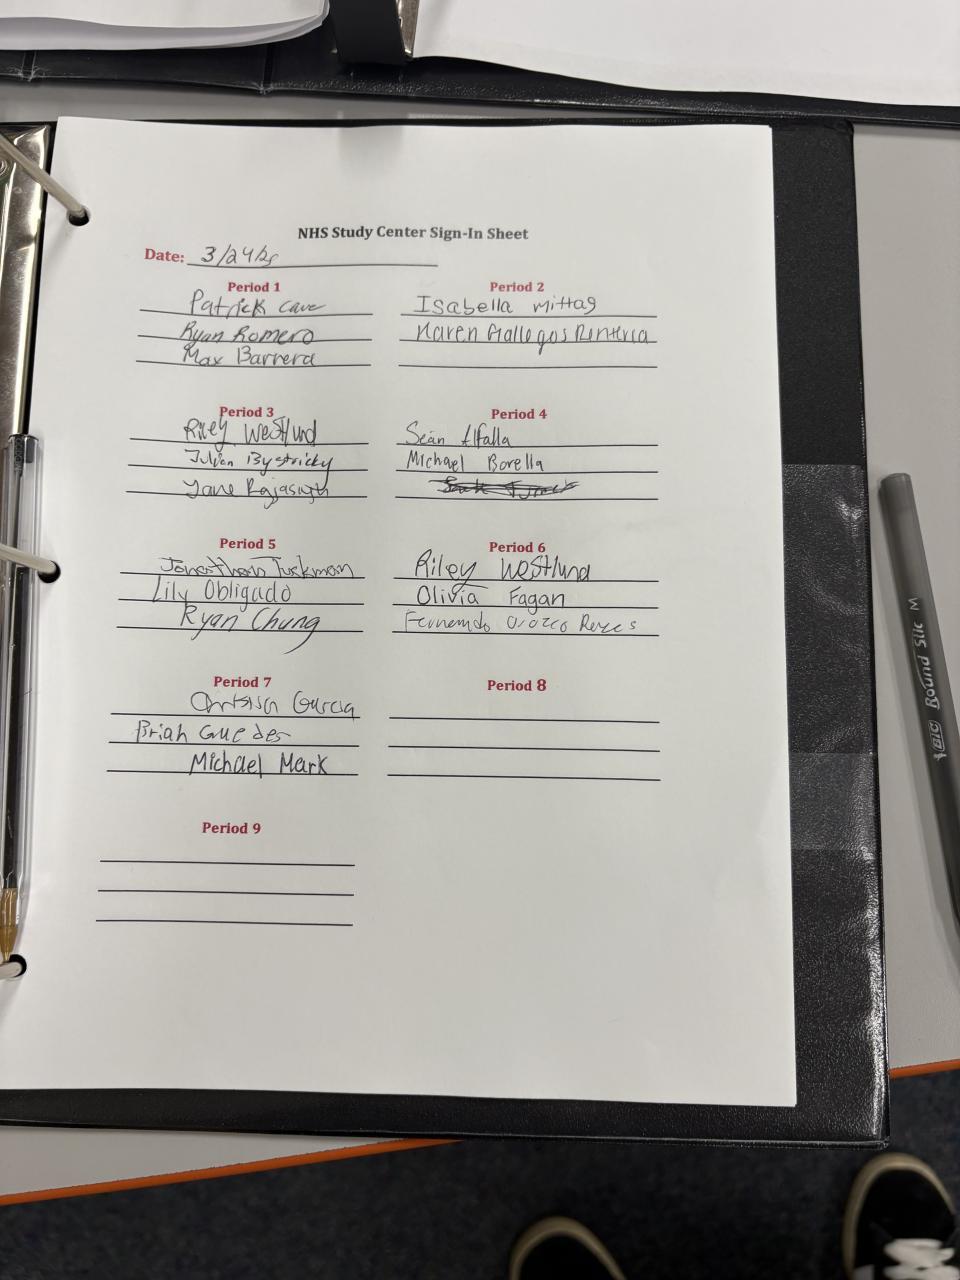 NHS Study Center Sign-In Sheet
Date: 3/24/25
Period 1
Patrick Cave
Ryan Romero
Max Barrera
Period 2
Isabella Mittag
Karen Gallegos Renteria
Period 3
Riley Westlund
Julian Bystricky
Rajasingh
Period 4
Sean Alfalla
Michael Borella
Period 5
Jonathan Tuckman
Lily Obligado
Ryan Chung
Period 6
Riley Westlund
Olivia Fagan
Fernando Orozco Reyes
Period 7
Garcia
Brian Guedes
Michael Mark
Period 8
Period 9
BIC Round Stic M